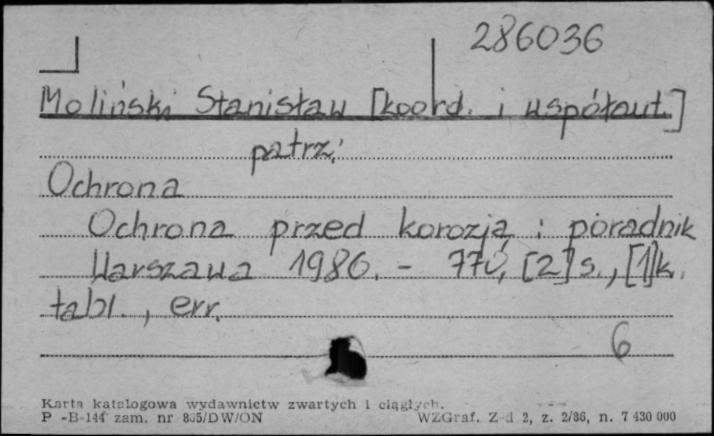 286036
Moliński Stanisław [koord. i współaut.]
patrz:
Ochrona
Ochrona przed korozją : poradnik
Warszawa 1986. - 770, [2] s., [1] k.
tabl., err.
6
Karta katalogowa wydawnictw zwartych i ciągłych.
P -B-144 zam. nr 805/DW/ON WZGraf. Z-d 2, z. 2/86, n. 7 430 000